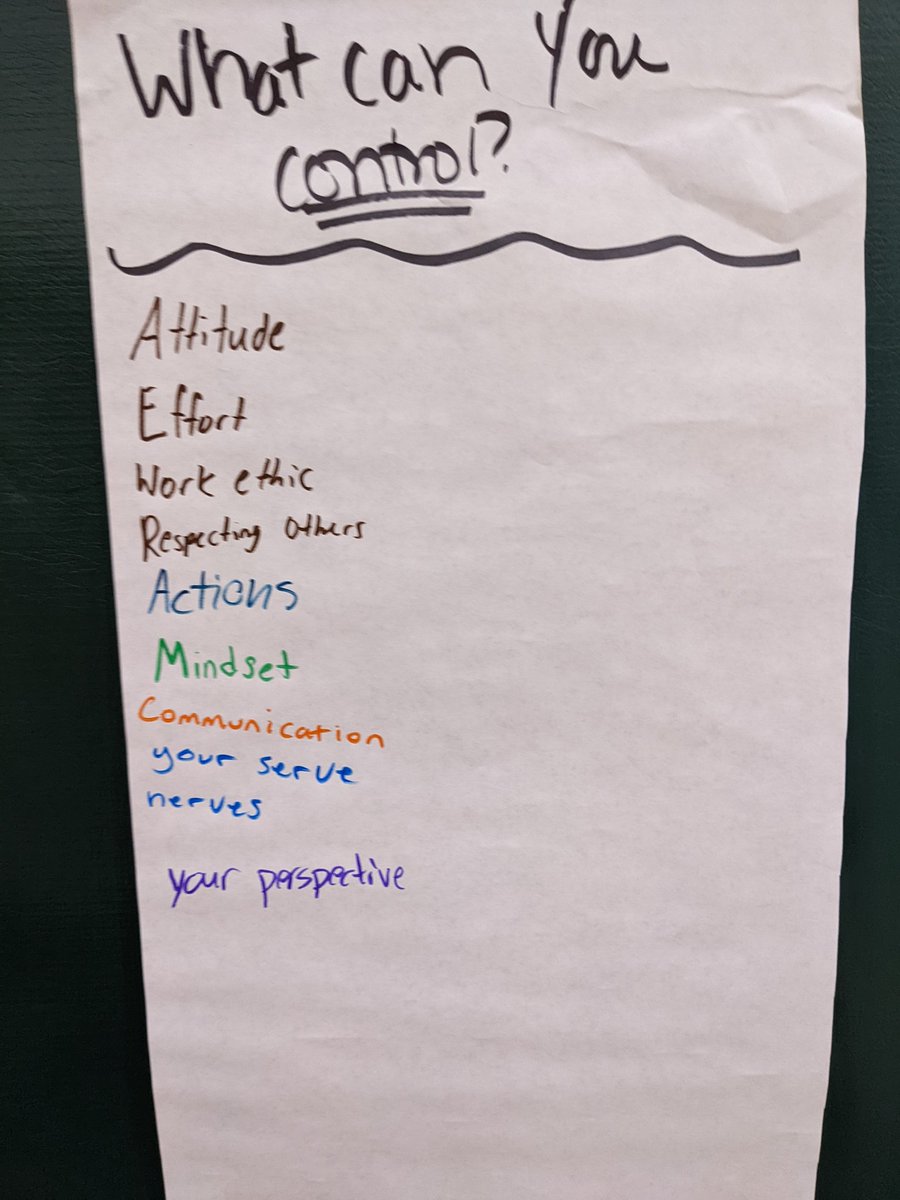 What can You
control?
Attitude
Effort
Work ethic
Respecting Others
Actions
Mindset
Communication
your serve
nerves
your perspective